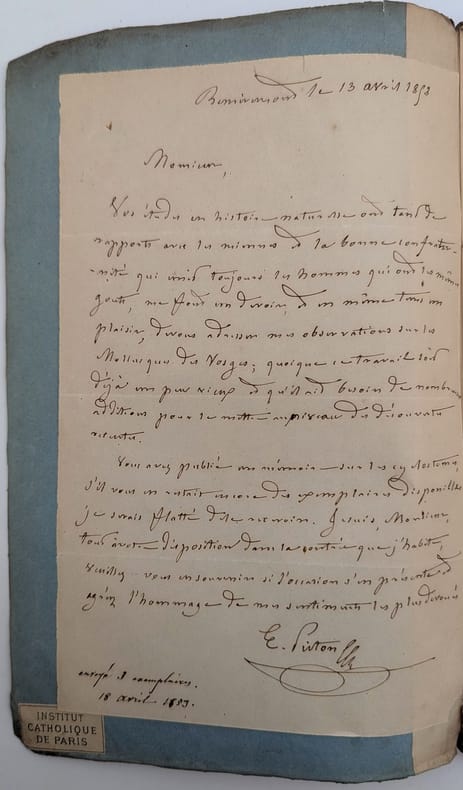 Remiremont le 13 avril 1853
Monsieur,
Vos études en histoire naturelle ont tant de
rapports avec les miennes et la bonne confrater-
-nité qui unit toujours les hommes qui ont les mêmes
gouts, me font un devoir, et en même tems un
plaisir, de vous adresser mes observations sur les
Mollusques des Vosges; quoique ce travail soit
déjà un peu vieux et qu'il ait besoin de nombreuses
additions pour le mettre au niveau des découvertes
récentes.
Vous avez publié un mémoire sur les cyclostomes,
s'il vous en restait encore des exemplaires disponibles
je serais flatté de le recevoir. Je suis, Monsieur,
tout à votre disposition dans la contrée que j'habite,
veuillez vous en souvenir si l'occasion s'en présente et
agréez l'hommage de mes sentiments les plus dévoués
E. Puton
envoyé 2 exemplaires.
18 avril 1853.
INSTITUT
CATHOLIQUE
DE PARIS